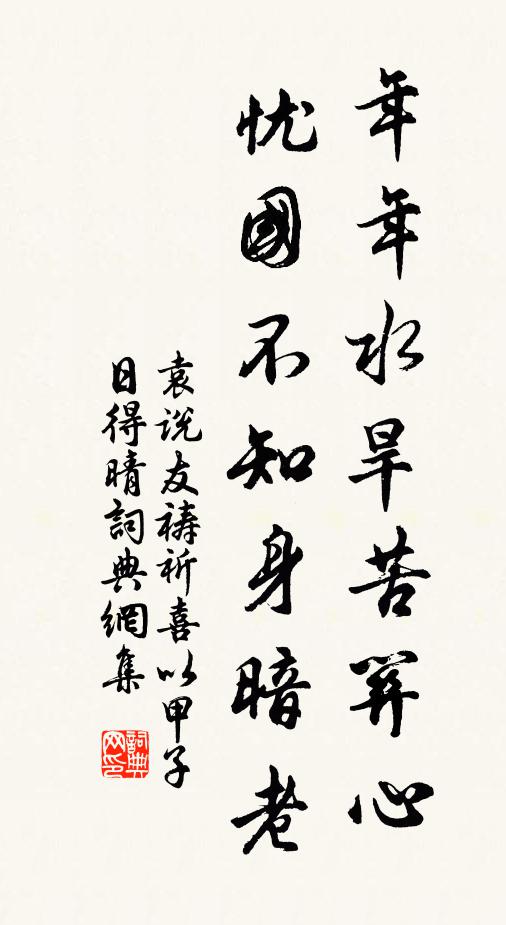 年年水旱苦關心
忧國不知身暗老
袁說友禱祈喜以甲子
日得晴詞典網集
詞典
网印